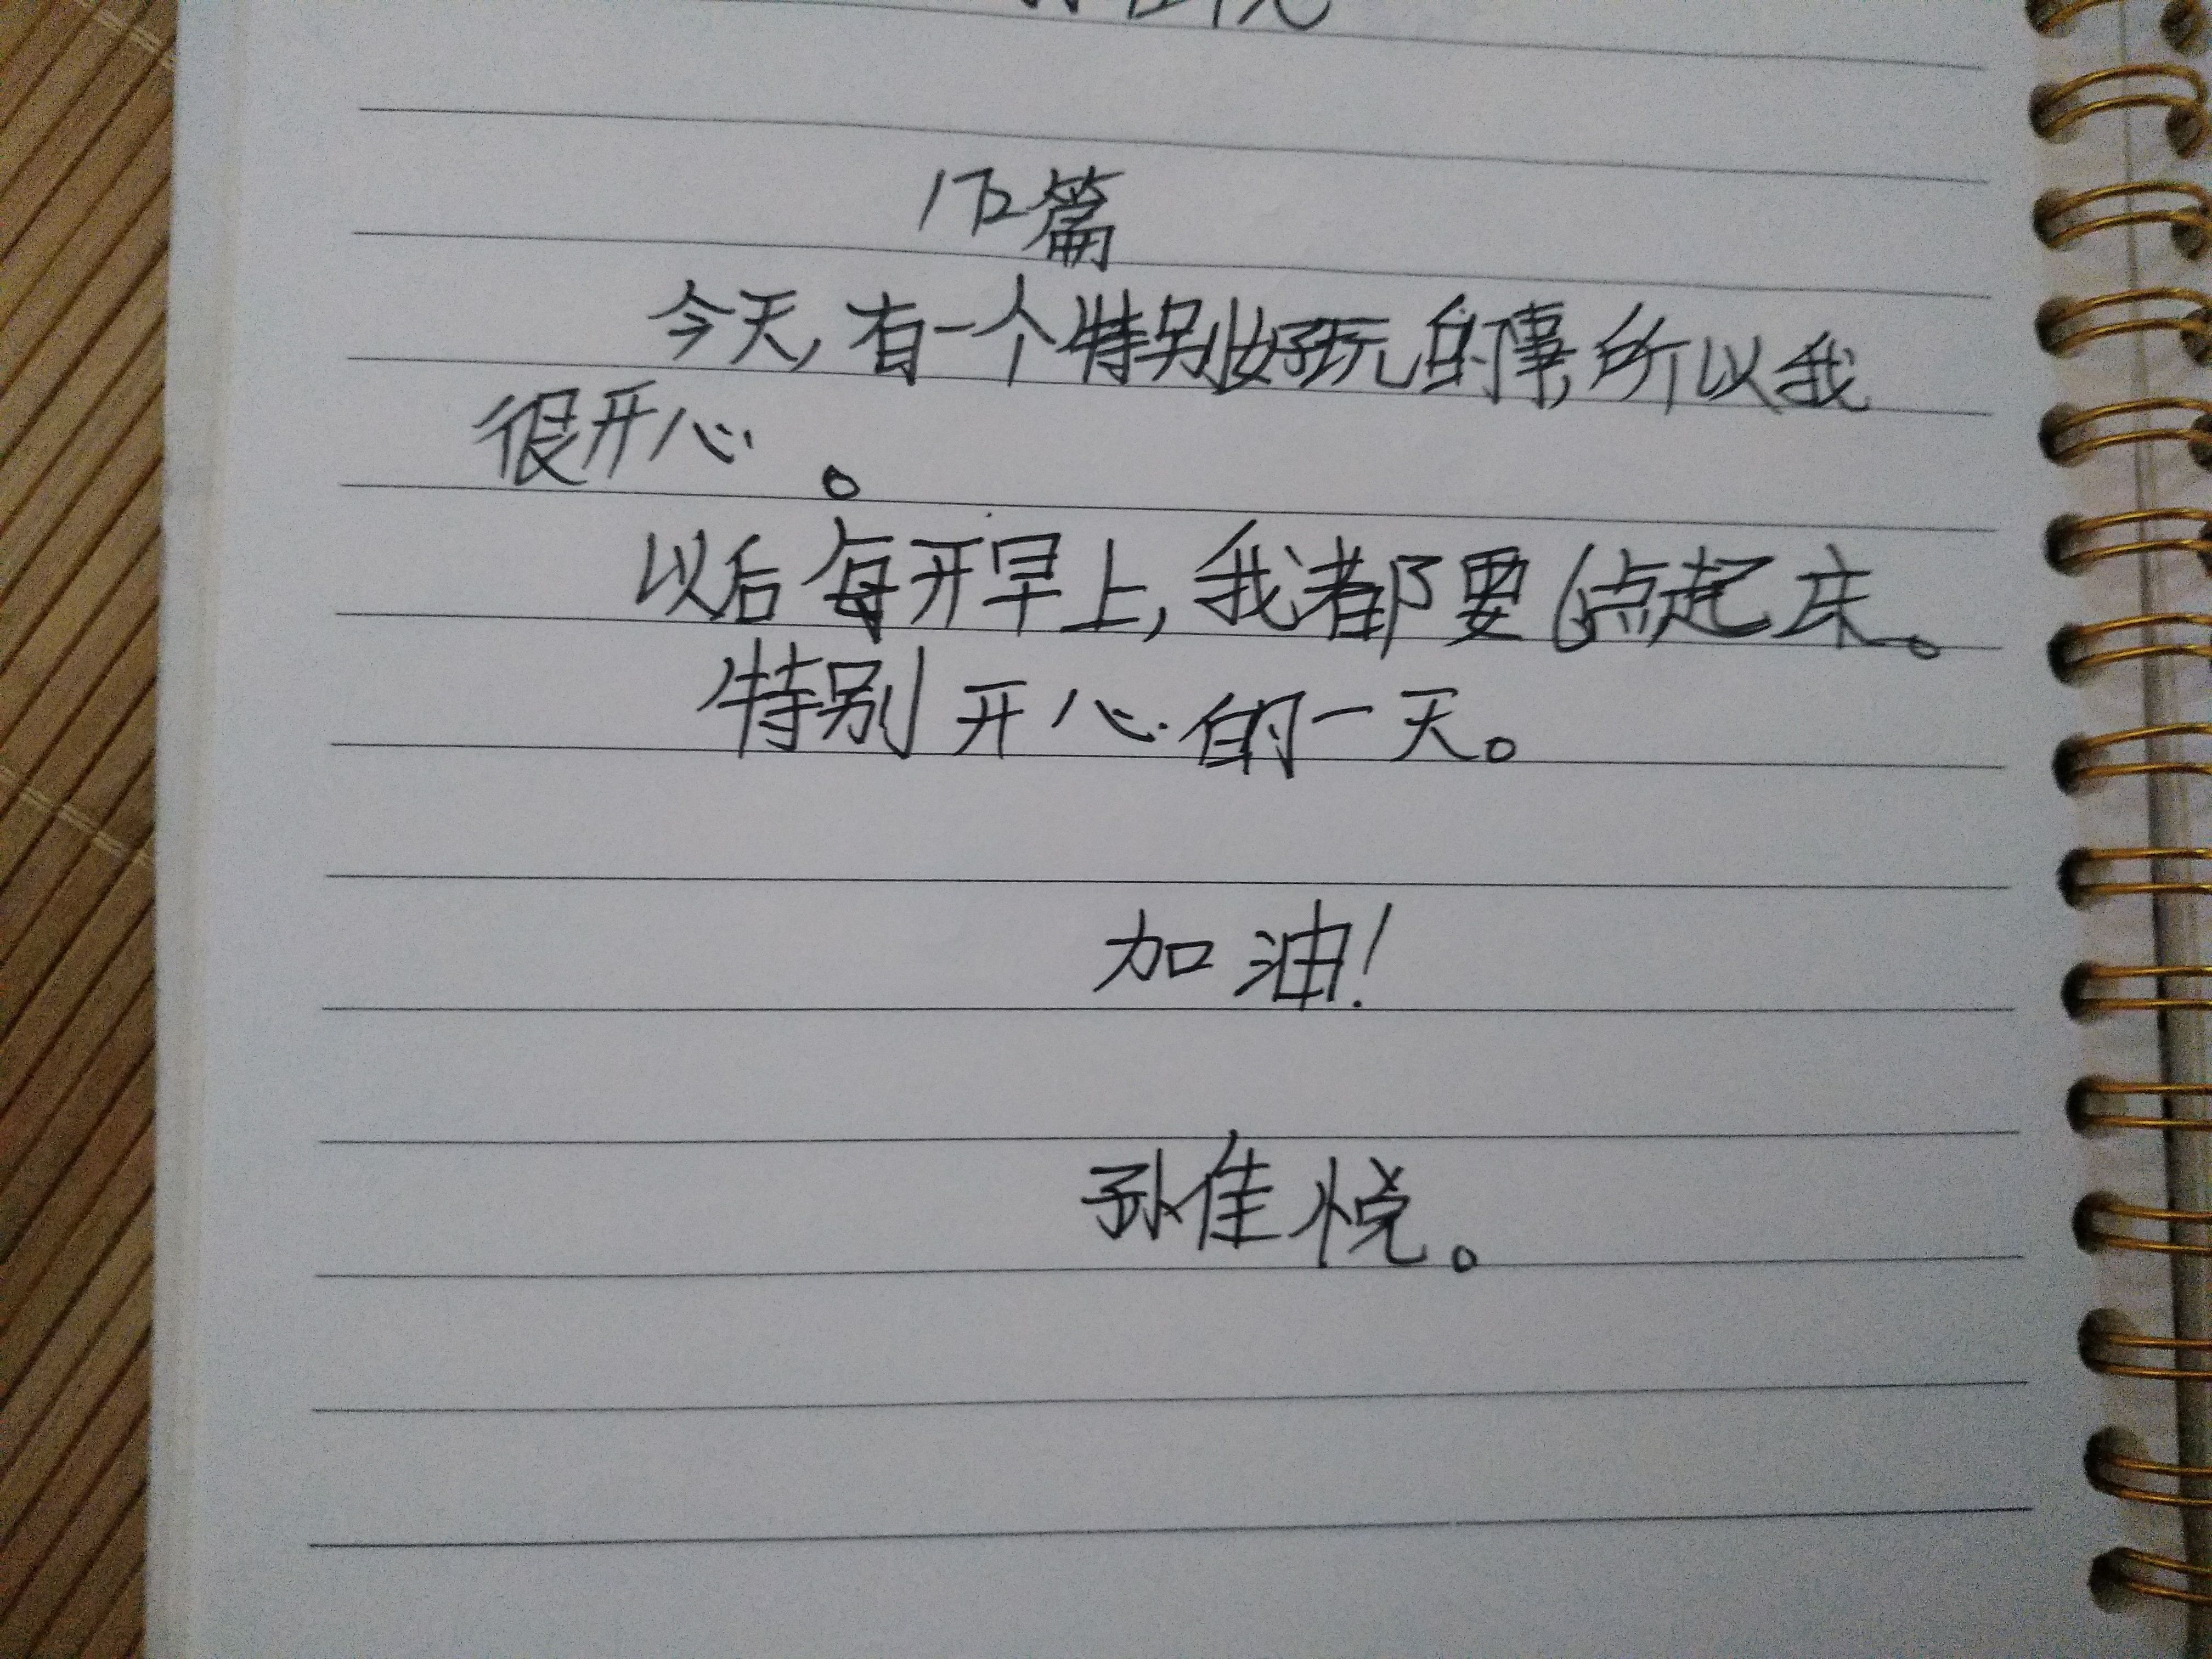 172篇
今天,有一个特别好玩的事,所以我
很开心。
以后每开早上,我都要6点起床。
特别开心的一天。
加油!
孙佳悦。